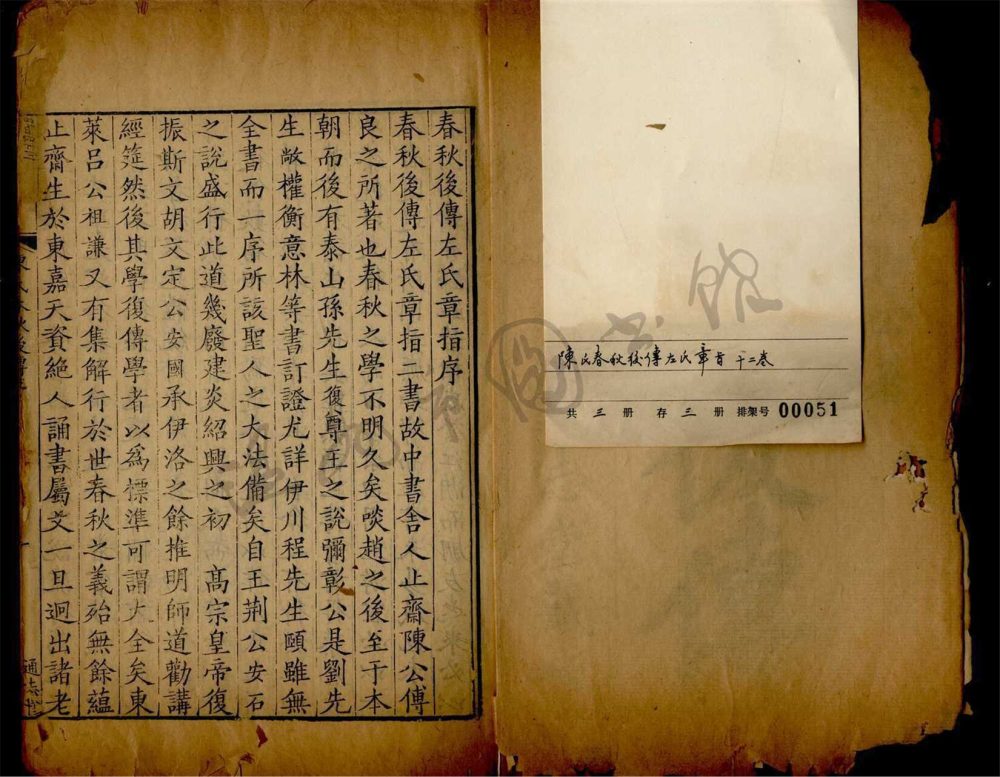 陳氏春秋後傳左氏章旨 十二卷
共 三 册 存 三 册 排架号 00051
春秋後傳左氏章指序
春秋後傳左氏章指二書故中書舍人止齋陳公傅
良之所著也春秋之學不明久矣啖趙之後至于本
朝而後有泰山孫先生復尊王之說彌彰公是劉先
生敞權衡意林等書訂證尤詳伊川程先生頤雖無
全書而一序所該聖人之大法備矣自王荆公安石
之說盛行此道幾廢建炎紹興之初 髙宗皇帝復
振斯文胡文定公安國承伊洛之餘推明師道勸講
經筵然後其學復傳學者以為標準可謂大全矣東
萊吕公祖謙又有集解行於世春秋之義殆無餘蘊
止齋生於東嘉天資絶人誦書屬文一旦迥出諸老
通志堂